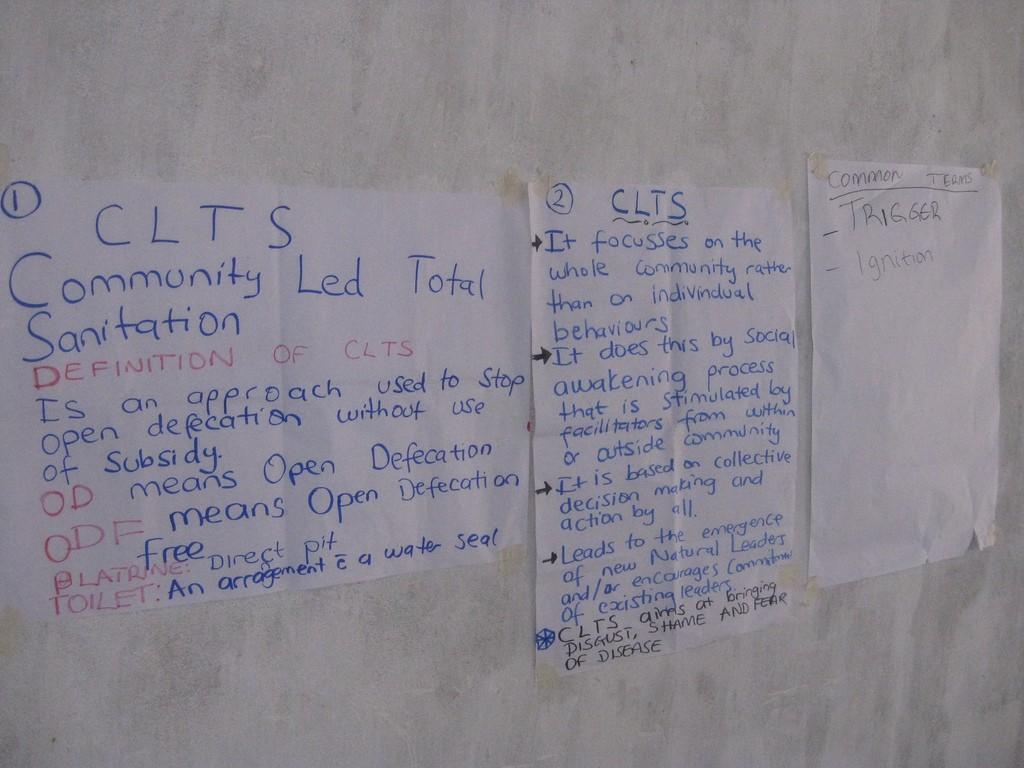 1
CLTS
Community Led Total
Sanitation
DEFINITION OF CLTS
Is an approach used to stop
open defecation without use
of Subsidy.
OD means Open Defecation
ODF means Open Defecation
free
LATRINE: Direct pit
TOILET: An arragement c̄ a water seal
2
CLTS
→ It focusses on the
whole community rather
than on indivindual
behaviours
→ It does this by social
awakening process
that is stimulated by
facilitators from within
or outside community
→ It is based on collective
decision making and
action by all.
→ Leads to the emergence
of new Natural Leaders
and/or encourages Commitme
of existing leaders.
CLTS aims at bringing
DISGUST, SHAME AND FEAR
OF DISEASE
Common TERMS
- TRIGGER
- Ignition